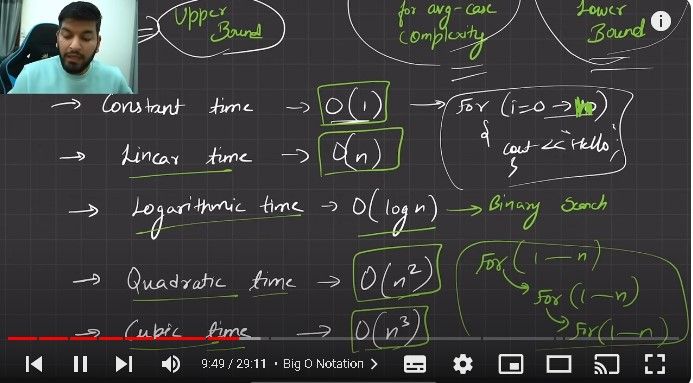 Upper
Bound
for avg-case
Complexity
Lower
Bound
→ Constant time → O(1) → For (i=0 → )
{
cout << "Hello";
}
→ Linear time → O(n)
→ Logarithmic time → O(log n) → Binary Search
→ Quadratic time → O(n²)
For (1 — n)
For (1 — n)
For (1 — n)
→ Cubic time → O(n³)
9:49 / 29:11 • Big O Notation >